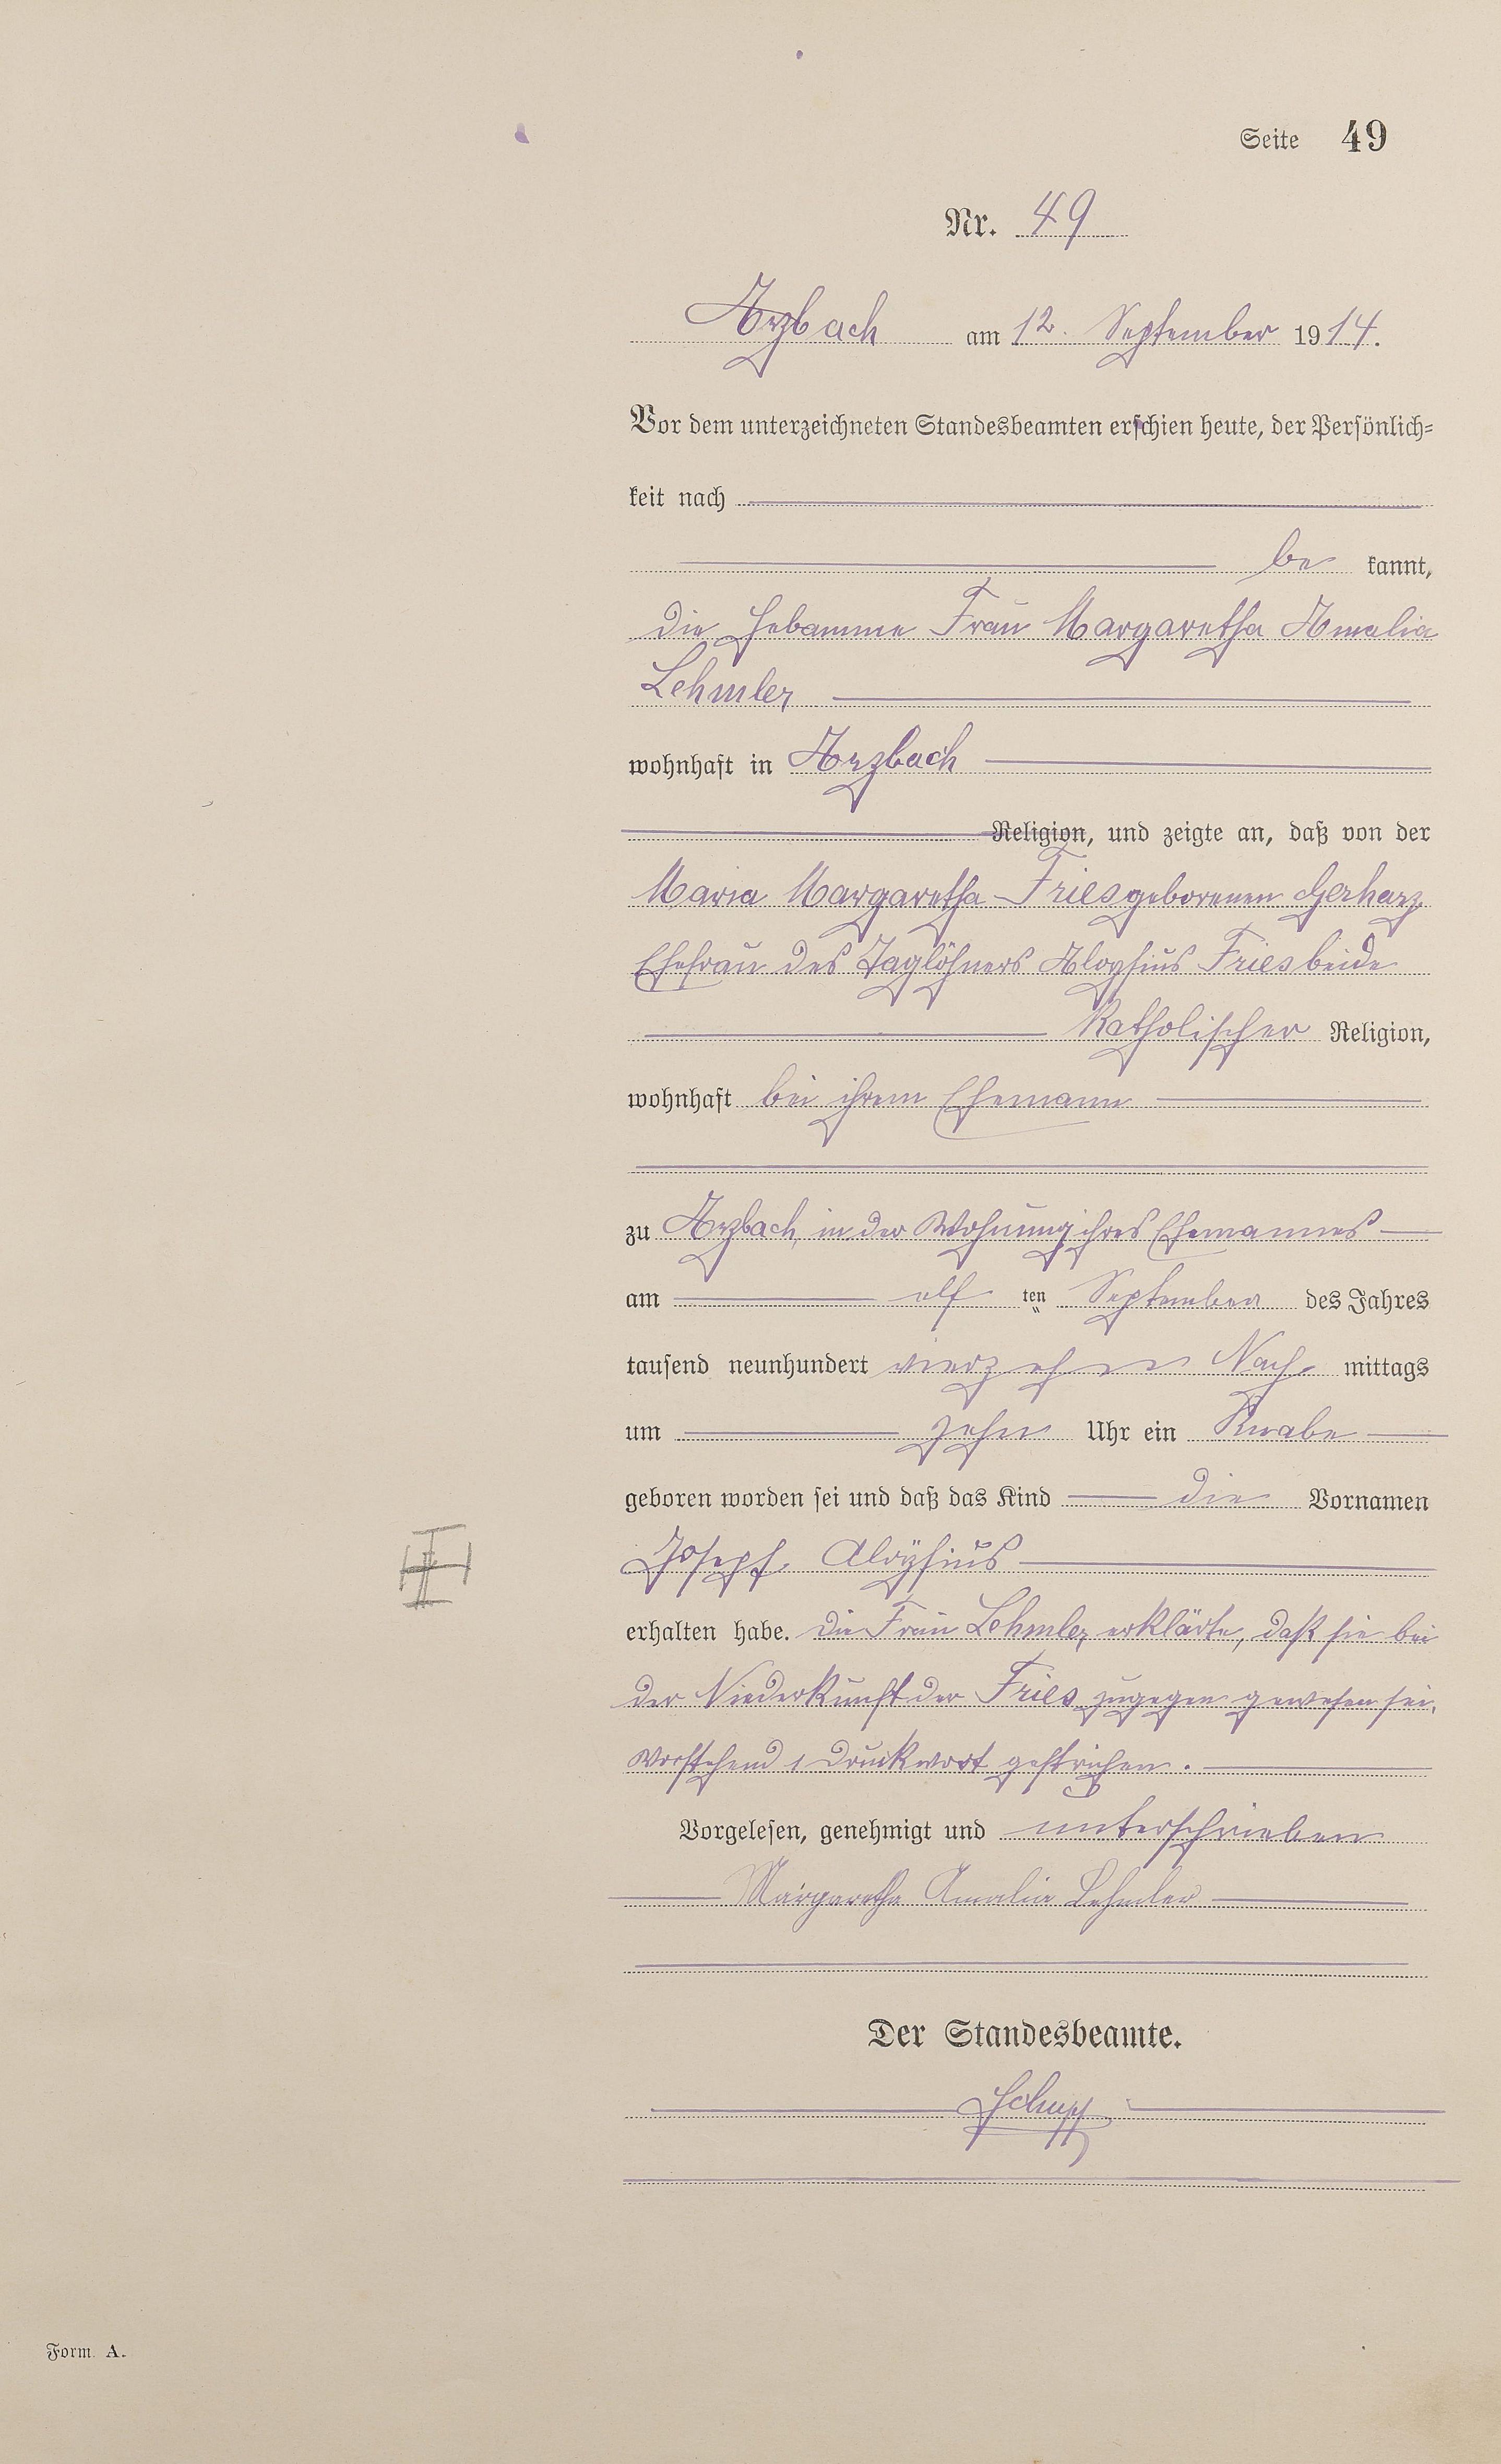 Seite 49
Nr. 49
Arzbach am 12. September 1914.
Vor dem unterzeichneten Standesbeamten erschien heute, der Persönlich-
keit nach
be kannt,
die Hebamme Frau Margaretha Amalia
Lehmler
wohnhaft in Arzbach
Religion, und zeigte an, daß von der
Maria Margaretha Fries geborenen Gerharz
Ehefrau des Taglöhners Aloysius Fries beide
katholischer Religion,
wohnhaft bei ihrem Ehemann
zu Arzbach, in der Wohnung ihres Ehemannes
am elf ten September des Jahres
tausend neunhundert vierzehn Nach mittags
um zehn Uhr ein Knabe
geboren worden sei und daß das Kind die Vornamen
Joseph Aloÿsius
erhalten habe. Die Frau Lehmler erklärte, daß sie bei
der Niederkunft der Fries zugegen gewesen sei.
Vorstehend 1 Druckwort gestrichen.
Vorgelesen, genehmigt und unterschrieben
Margaretha Amalia Lehmler
Der Standesbeamte.
Schupp
Form. A.